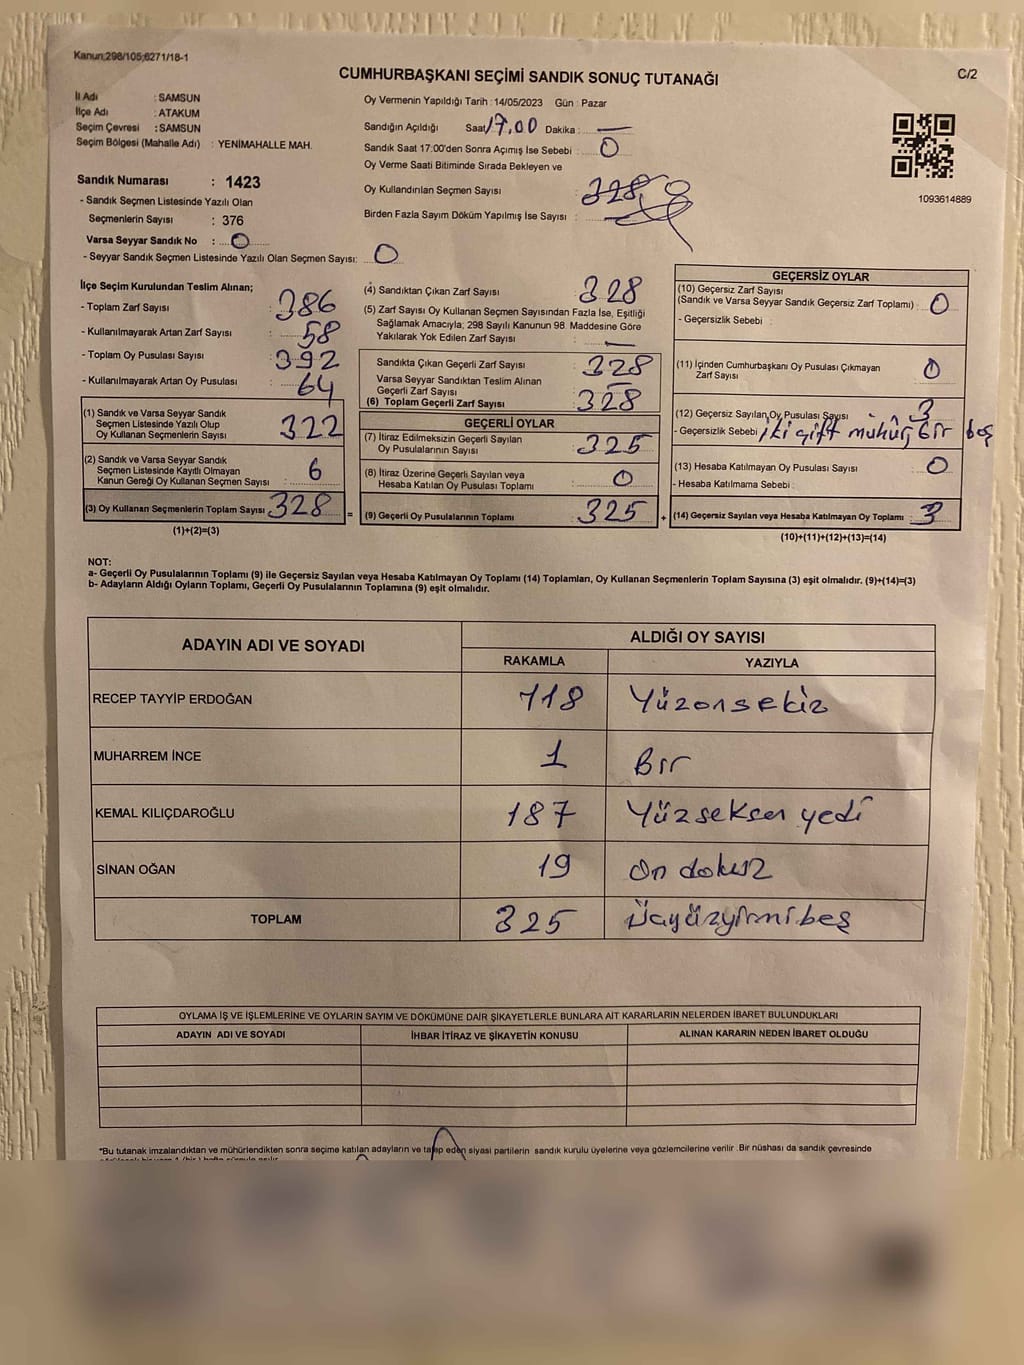 Kanun;298/105;6271/18-1
CUMHURBAŞKANI SEÇİMİ SANDIK SONUÇ TUTANAĞI
C/2
İl Adı : SAMSUN
İlçe Adı : ATAKUM
Seçim Çevresi : SAMSUN
Seçim Bölgesi (Mahalle Adı) : YENİMAHALLE MAH.
Oy Vermenin Yapıldığı Tarih : 14/05/2023 Gün : Pazar
Sandığın Açıldığı Saat 17.00 Dakika : —
Sandık Saat 17:00'den Sonra Açımış İse Sebebi : 0
Oy Verme Saati Bitiminde Sırada Bekleyen ve
Oy Kullandırılan Seçmen Sayısı : 328 0
Birden Fazla Sayım Döküm Yapılmış İse Sayısı :
1093614889
Sandık Numarası : 1423
- Sandık Seçmen Listesinde Yazılı Olan
Seçmenlerin Sayısı : 376
Varsa Seyyar Sandık No : 0
- Seyyar Sandık Seçmen Listesinde Yazılı Olan Seçmen Sayısı: 0
İlçe Seçim Kurulundan Teslim Alınan;
- Toplam Zarf Sayısı : 386
- Kullanılmayarak Artan Zarf Sayısı : 58
- Toplam Oy Pusulası Sayısı : 392
- Kullanılmayarak Artan Oy Pusulası : 64
(1) Sandık ve Varsa Seyyar Sandık
Seçmen Listesinde Yazılı Olup
Oy Kullanan Seçmenlerin Sayısı : 322
(2) Sandık ve Varsa Seyyar Sandık
Seçmen Listesinde Kayıtlı Olmayan
Kanun Gereği Oy Kullanan Seçmen Sayısı : 6
(3) Oy Kullanan Seçmenlerin Toplam Sayısı : 328
(1)+(2)=(3)
(4) Sandıktan Çıkan Zarf Sayısı : 328
(5) Zarf Sayısı Oy Kullanan Seçmen Sayısından Fazla İse, Eşitliği
Sağlamak Amacıyla; 298 Sayılı Kanunun 98. Maddesine Göre
Yakılarak Yok Edilen Zarf Sayısı : —
Sandıkta Çıkan Geçerli Zarf Sayısı : 328
Varsa Seyyar Sandıktan Teslim Alınan
Geçerli Zarf Sayısı : —
(6) Toplam Geçerli Zarf Sayısı : 328
GEÇERLİ OYLAR
(7) İtiraz Edilmeksizin Geçerli Sayılan
Oy Pusulalarının Sayısı : 325
(8) İtiraz Üzerine Geçerli Sayılan veya
Hesaba Katılan Oy Pusulası Toplamı : 0
= (9) Geçerli Oy Pusulalarının Toplamı : 325
GEÇERSİZ OYLAR
(10) Geçersiz Zarf Sayısı
(Sandık ve Varsa Seyyar Sandık Geçersiz Zarf Toplamı) : 0
- Geçersizlik Sebebi :
(11) İçinden Cumhurbaşkanı Oy Pusulası Çıkmayan
Zarf Sayısı : 0
(12) Geçersiz Sayılan Oy Pusulası Sayısı : 3
- Geçersizlik Sebebi : iki çift mühür, bir boş
(13) Hesaba Katılmayan Oy Pusulası Sayısı : 0
- Hesaba Katılmama Sebebi :
+ (14) Geçersiz Sayılan veya Hesaba Katılmayan Oy Toplamı : 3
(10)+(11)+(12)+(13)=(14)
NOT:
a- Geçerli Oy Pusulalarının Toplamı (9) ile Geçersiz Sayılan veya Hesaba Katılmayan Oy Toplamı (14) Toplamları, Oy Kullanan Seçmenlerin Toplam Sayısına (3) eşit olmalıdır. (9)+(14)=(3)
b- Adayların Aldığı Oyların Toplamı, Geçerli Oy Pusulalarının Toplamına (9) eşit olmalıdır.
ADAYIN ADI VE SOYADI
ALDIĞI OY SAYISI
RAKAMLA YAZIYLA
RECEP TAYYİP ERDOĞAN 118 Yüzonsekiz
MUHARREM İNCE 1 Bir
KEMAL KILIÇDAROĞLU 187 Yüzseksen yedi
SİNAN OĞAN 19 On dokuz
TOPLAM 325 Üçyüzyirmibeş
OYLAMA İŞ VE İŞLEMLERİNE VE OYLARIN SAYIM VE DÖKÜMÜNE DAİR ŞİKAYETLERLE BUNLARA AİT KARARLARIN NELERDEN İBARET BULUNDUKLARI
ADAYIN ADI VE SOYADI İHBAR İTİRAZ VE ŞİKAYETİN KONUSU ALINAN KARARIN NEDEN İBARET OLDUĞU
*Bu tutanak imzalandıktan ve mühürlendikten sonra seçime katılan adayların ve talep eden siyasi partilerin sandık kurulu üyelerine veya gözlemcilerine verilir. Bir nüshası da sandık çevresinde